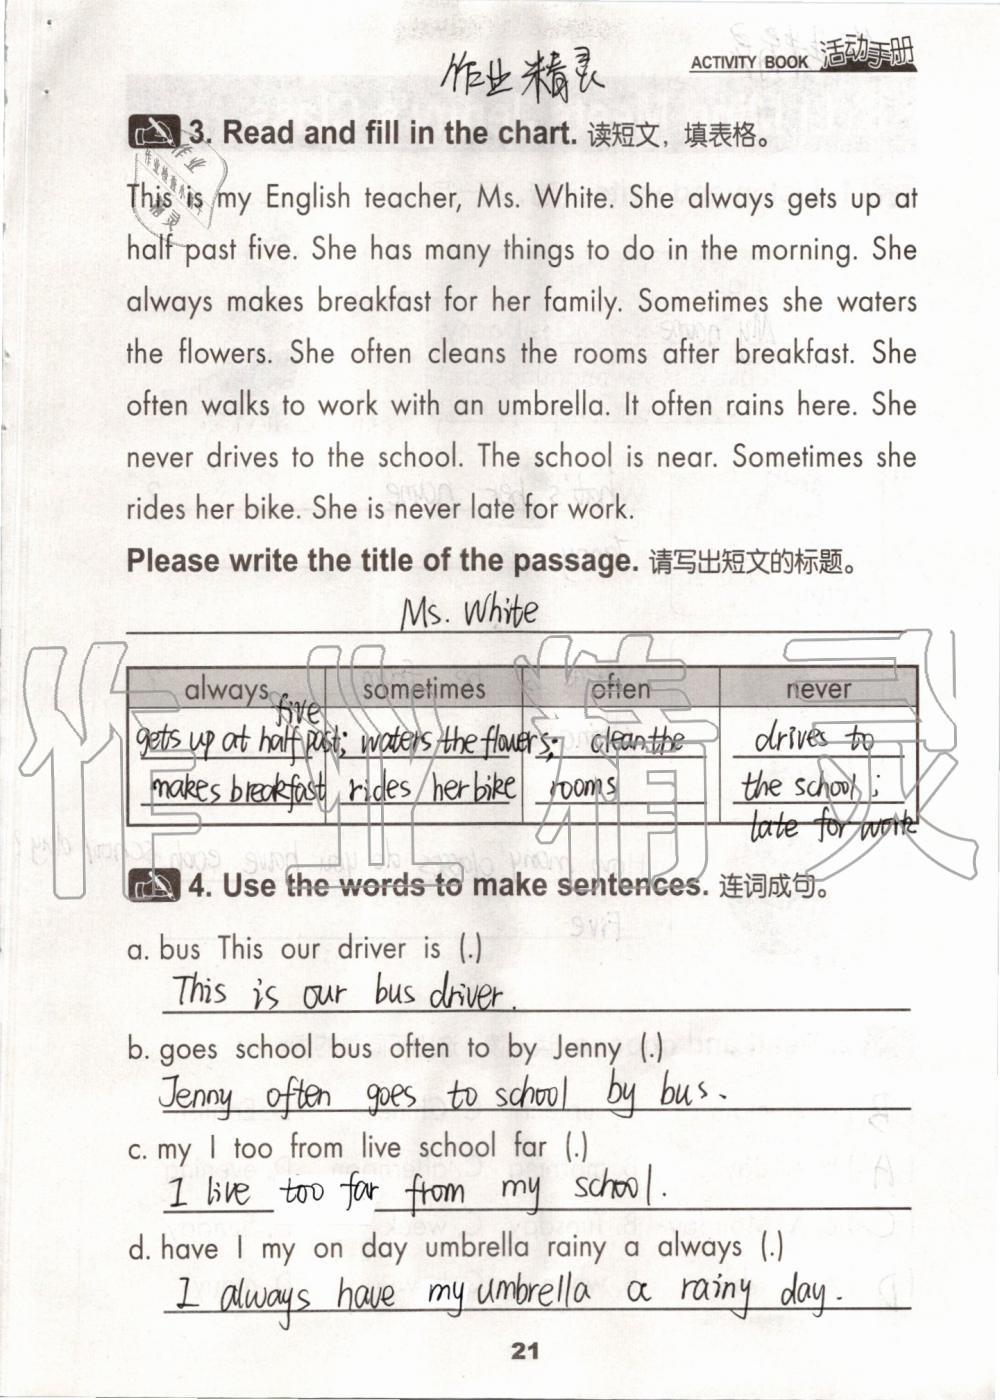 ACTIVITY BOOK 活动手册
作业精灵
3. Read and fill in the chart. 读短文，填表格。
This is my English teacher, Ms. White. She always gets up at
half past five. She has many things to do in the morning. She
always makes breakfast for her family. Sometimes she waters
the flowers. She often cleans the rooms after breakfast. She
often walks to work with an umbrella. It often rains here. She
never drives to the school. The school is near. Sometimes she
rides her bike. She is never late for work.
Please write the title of the passage. 请写出短文的标题。
Ms. White
always sometimes often never
five
gets up at half past; waters the flowers; clean the drives to
makes breakfast rides her bike rooms the school;
late for work
4. Use the words to make sentences. 连词成句。
a. bus This our driver is (.)
This is our bus driver.
b. goes school bus often to by Jenny (.)
Jenny often goes to school by bus.
c. my I too from live school far (.)
I live too far from my school.
d. have I my on day umbrella rainy a always (.)
I always have my umbrella a rainy day.
21
作业精灵